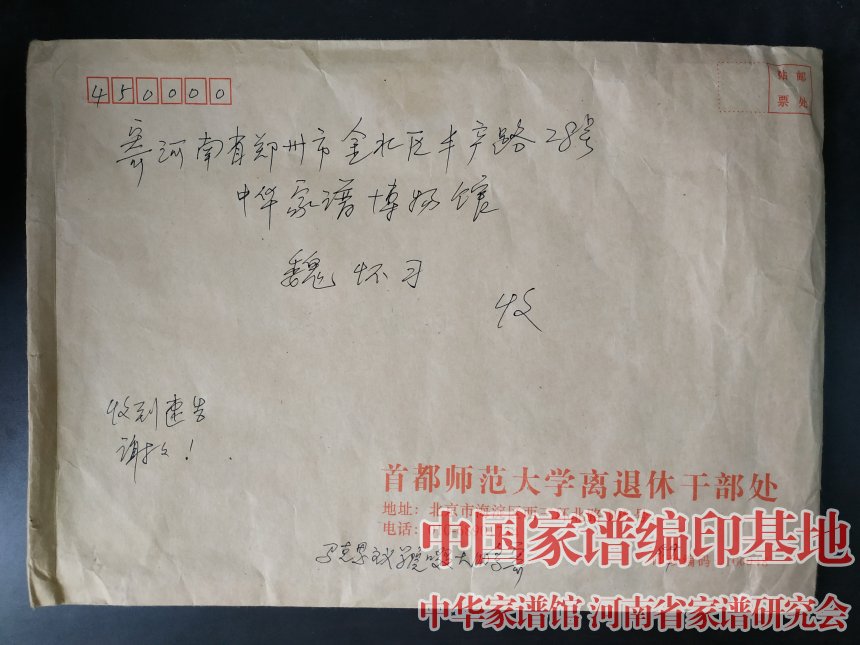 450000
邮
站
票 处
寄河南省郑州市金水区丰产路28号
中华家谱博物馆
魏怀习
收
收到速告
谢扰！
首都师范大学离退休干部处
地址：北京市海淀区西三环北路
电话：
马克思主义学院
中国家谱编印基地
中华家谱馆 河南省家谱研究会